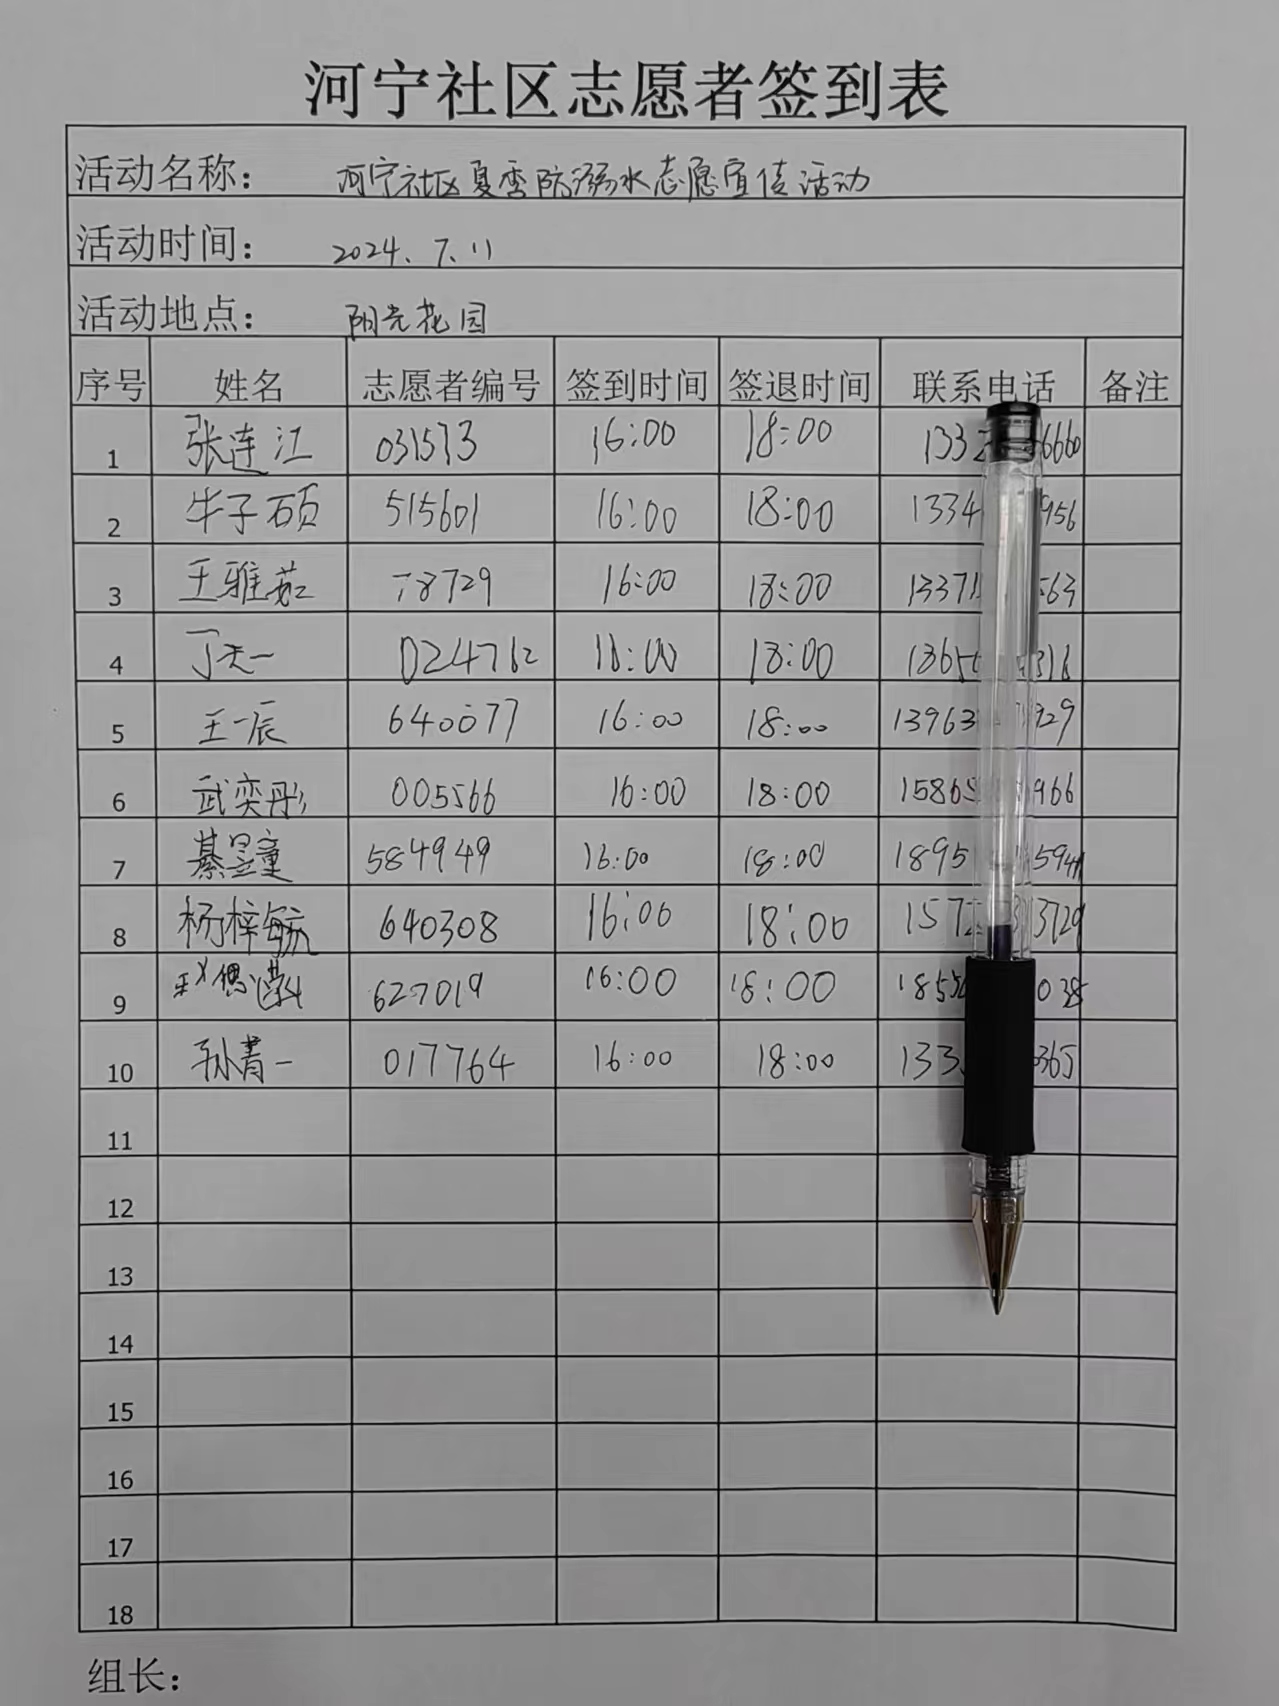 河宁社区志愿者签到表
活动名称： 河宁社区夏季防溺水志愿宣传活动
活动时间： 2024.7.11
活动地点： 阳光花园
序号 姓名 志愿者编号 签到时间 签退时间 联系电话 备注
1 张连江 031573 16:00 18:00 133 6660
2 牛子硕 515601 16:00 18:00 1334 956
3 王雅茹 78729 16:00 18:00 1337 563
4 丁天一 024762 16:00 18:00 1365 316
5 王一辰 640077 16:00 18:00 13963 929
6 武奕彤 005566 16:00 18:00 1586 966
7 綦昱童 584949 16:00 18:00 1895 594
8 杨梓毓 640308 16:00 18:00 157 3729
9 627019 16:00 18:00 185 038
10 孙菁一 017764 16:00 18:00 133 365
11
12
13
14
15
16
17
18
组长：